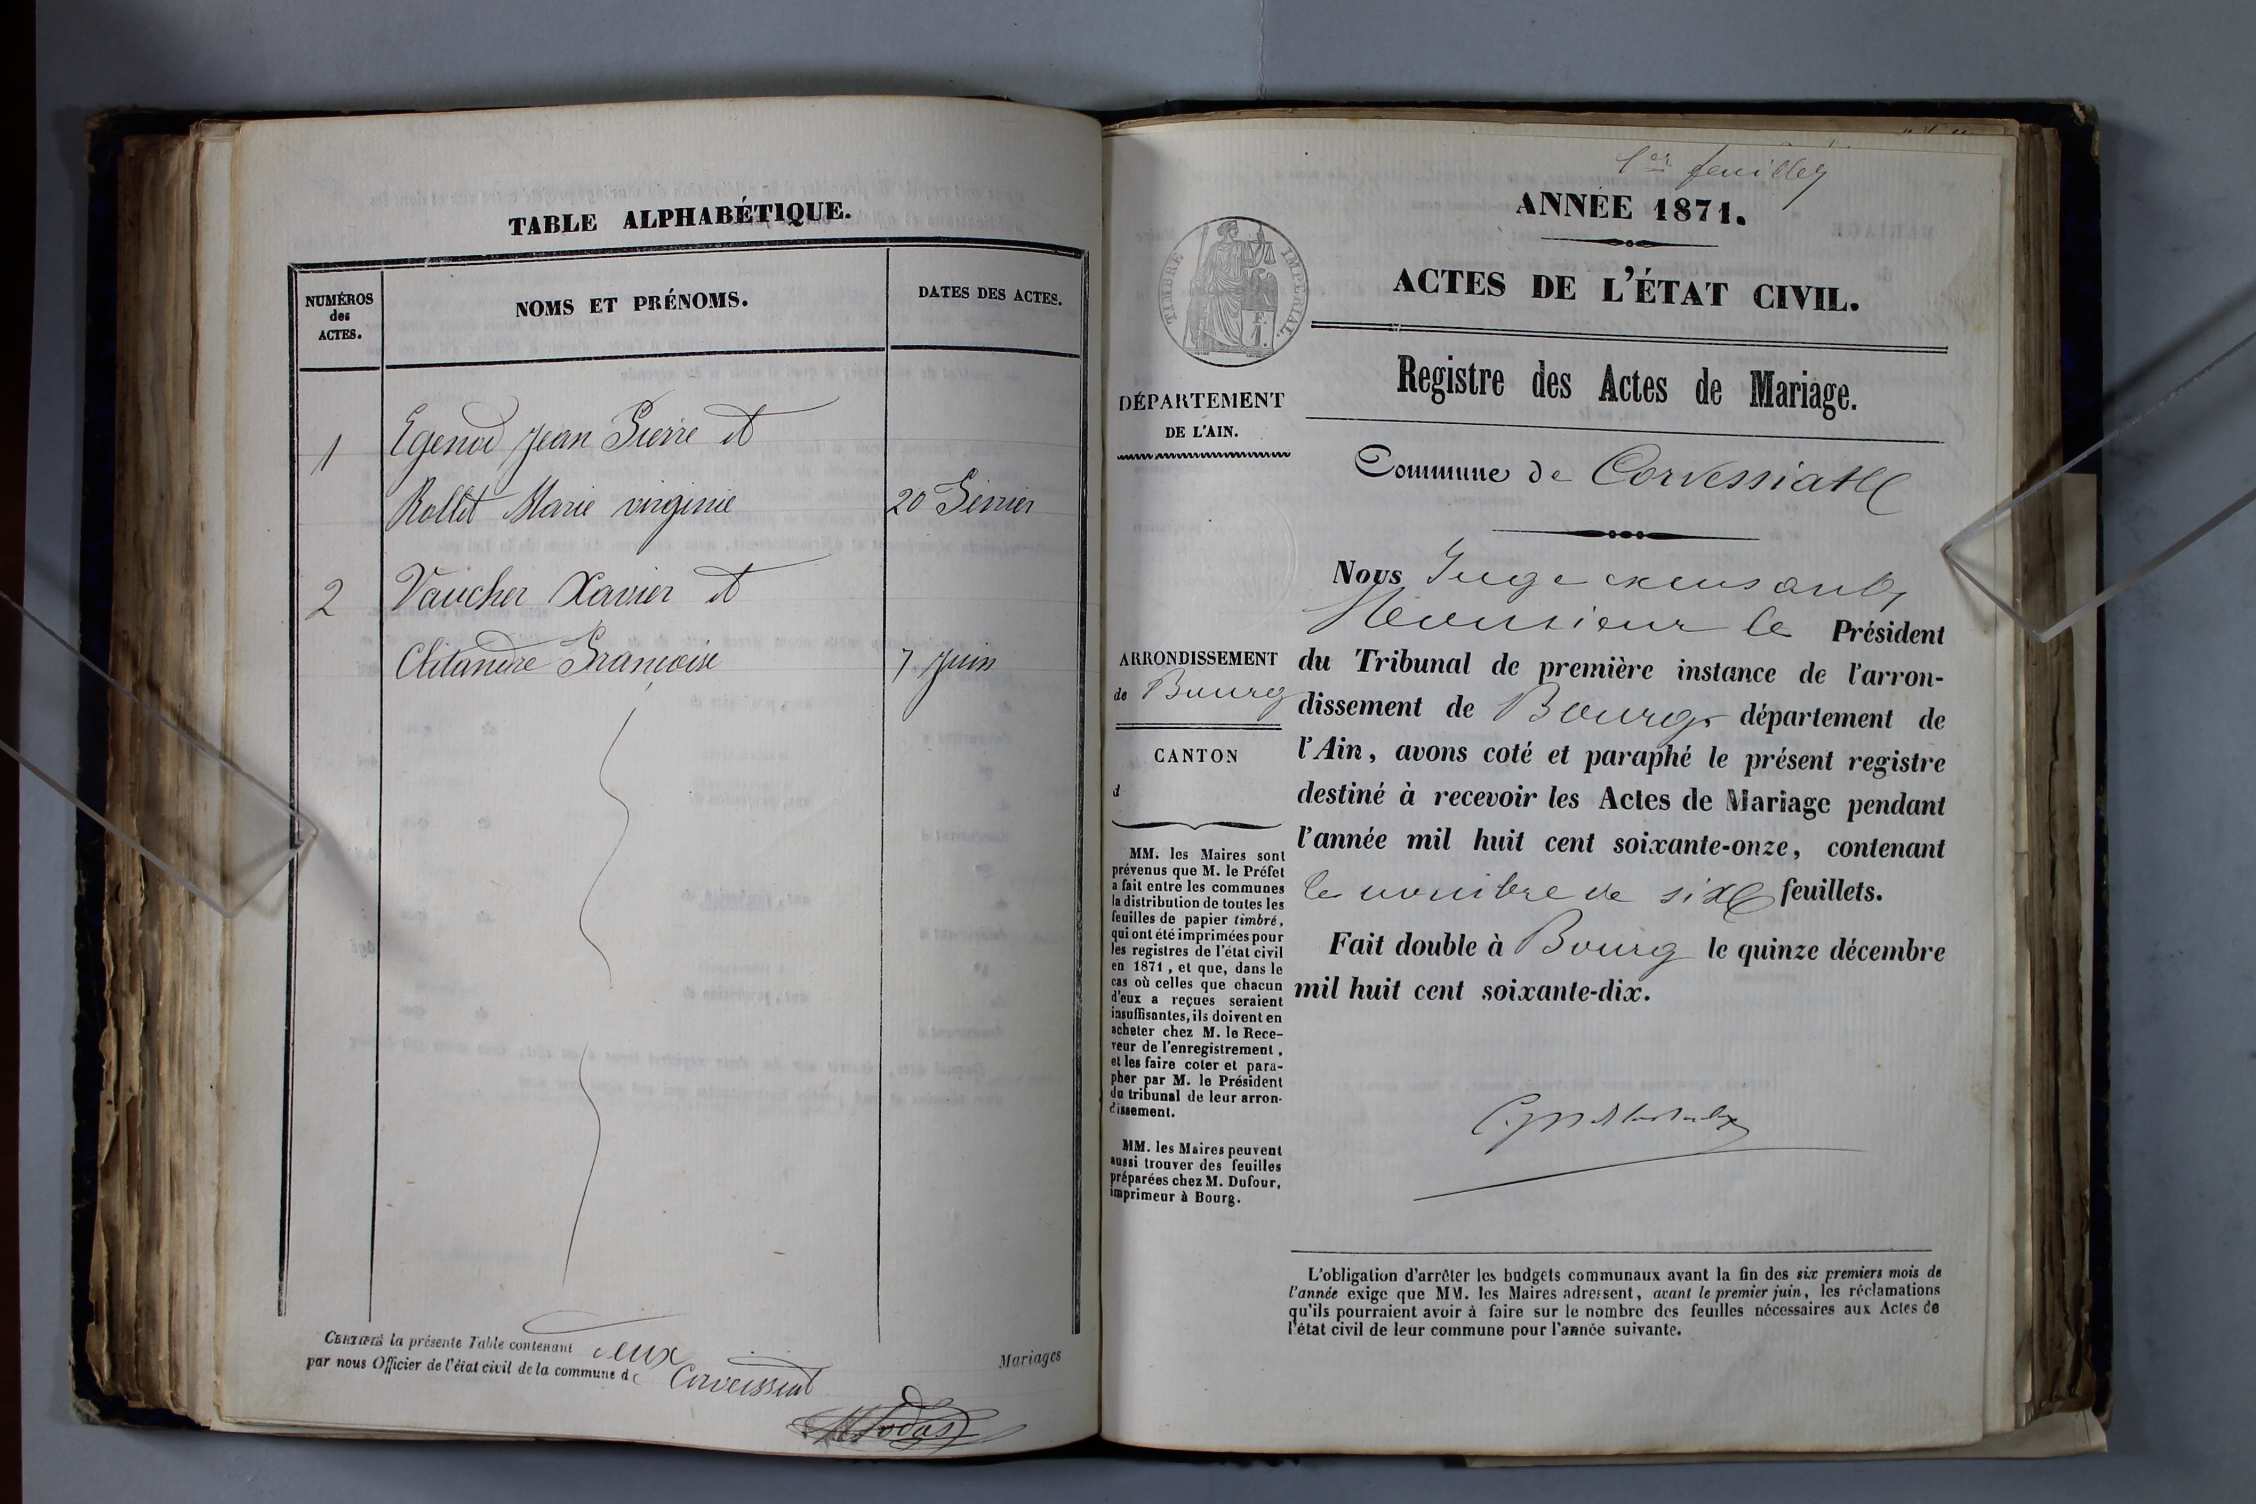 TABLE ALPHABÉTIQUE.
NUMÉROS
des
ACTES.
NOMS ET PRÉNOMS.
DATES DES ACTES.
1
Egenod Jean Pierre et
Rollet Marie virginie
20 Février
2
Vaucher Xavier et
Clitandre Françoise
7 Juin
CERTIFIÉ la présente Table contenant deux
Mariages
par nous Officier de l'état civil de la commune de Corveissiat
1er feuillet
ANNÉE 1871.
ACTES DE L'ÉTAT CIVIL.
TIMBRE IMPÉRIAL.
Registre des Actes de Mariage.
DÉPARTEMENT
DE L'AIN.
Commune de Corvessiat
ARRONDISSEMENT
de Bourg
CANTON
d
MM. les Maires sont
prévenus que M. le Préfet
a fait entre les communes
la distribution de toutes les
feuilles de papier timbré,
qui ont été imprimées pour
les registres de l'état civil
en 1871, et que, dans le
cas où celles que chacun
d'eux a reçues seraient
insuffisantes, ils doivent en
acheter chez M. le Rece-
veur de l'enregistrement,
et les faire coter et para-
pher par M. le Président
du tribunal de leur arron-
dissement.
MM. les Maires peuvent
aussi trouver des feuilles
préparées chez M. Dufour,
imprimeur à Bourg.
Nous Juge
Monsieur le Président
du Tribunal de première instance de l'arron-
dissement de Bourg département de
l'Ain, avons coté et paraphé le présent registre
destiné à recevoir les Actes de Mariage pendant
l'année mil huit cent soixante-onze, contenant
le nombre de six feuillets.
Fait double à Bourg le quinze décembre
mil huit cent soixante-dix.
L'obligation d'arrêter les budgets communaux avant la fin des six premiers mois de
l'année exige que MM. les Maires adressent, avant le premier juin, les réclamations
qu'ils pourraient avoir à faire sur le nombre des feuilles nécessaires aux Actes de
l'état civil de leur commune pour l'année suivante.